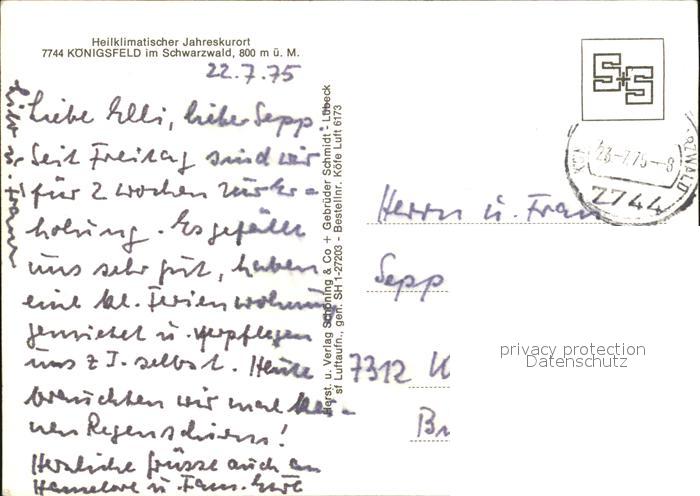 Heilklimatischer Jahreskurort
7744 KÖNIGSFELD im Schwarzwald, 800 m ü. M.
22.7.75
Liebe Elli, lieber Sepp!
Seit Freitag sind wir
für 2 Wochen zur Er-
holung. Es gefällt
uns sehr gut, haben
eine kl. Ferienwohnung
gemietet u. verpflegen
uns z. T. selbst. Heute
brauchten wir mal kei-
nen Regenschirm!
Herzliche Grüsse auch an
Hannelore u. Fam.
u. Frau
Herst. u. Verlag Schöning & Co + Gebrüder Schmidt - Lübeck
sf Luftaufn., gen. SH 1-27203 - Bestellnr. Köfe Luft 6173
S+S
23.-7.75-8
7744
Herrn u. Frau
Sepp
7312 K
Br
privacy protection
Datenschutz